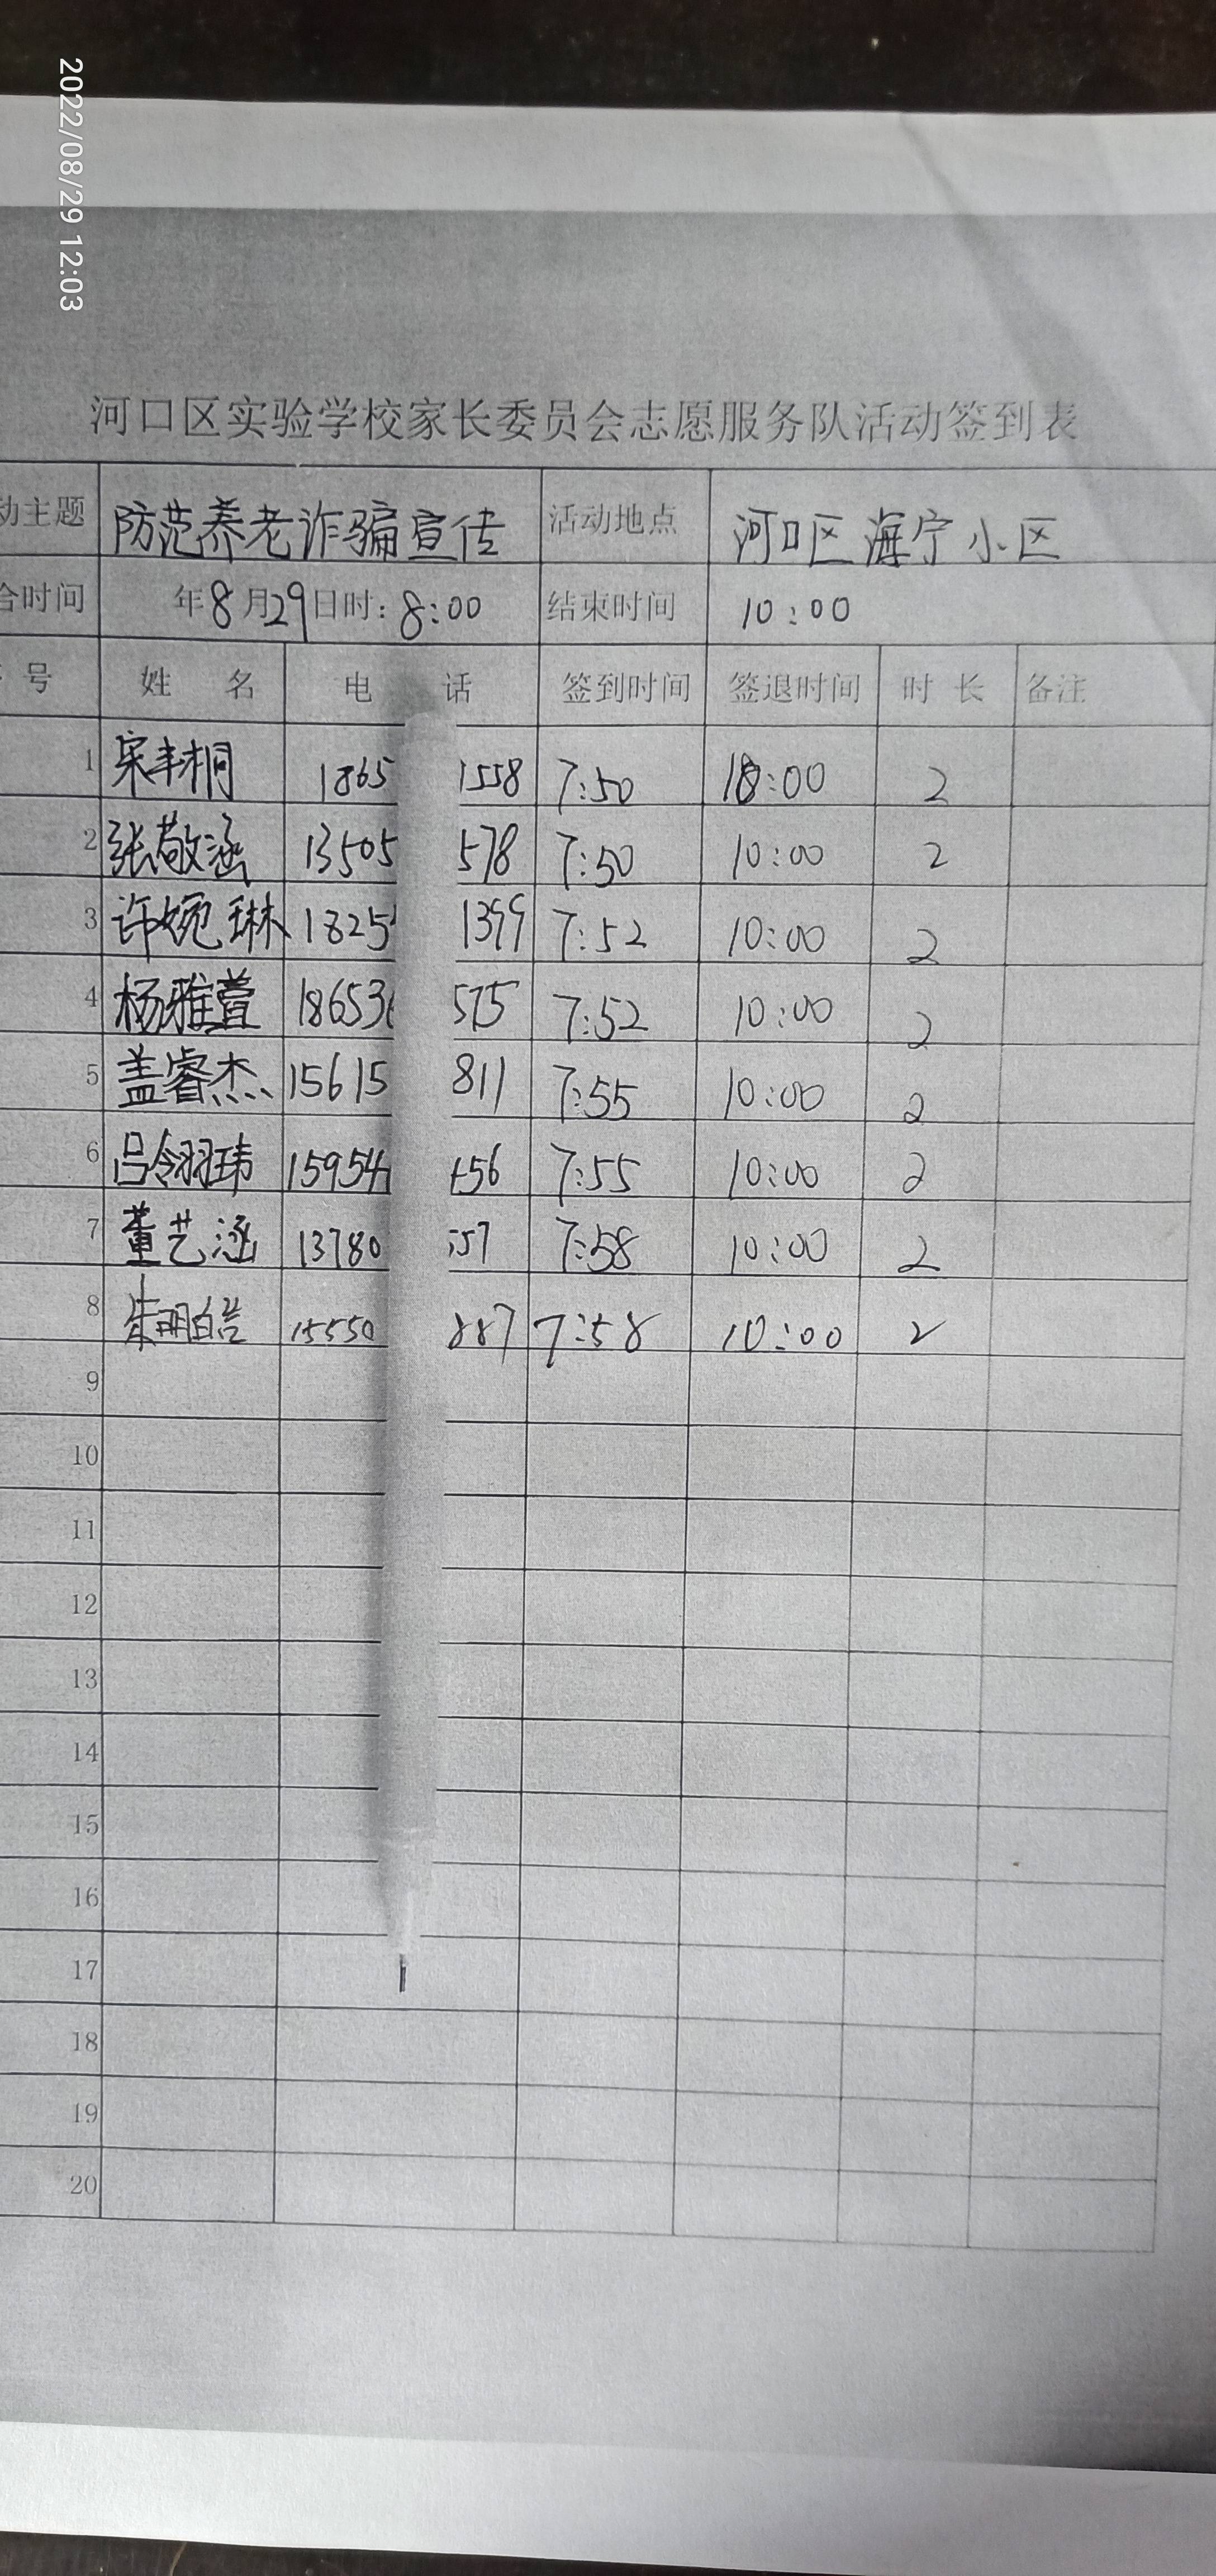 2022/08/29 12:03
河口区实验学校家长委员会志愿服务队活动签到表
动主题 防范养老诈骗宣传 活动地点 河口区海宁小区
合时间 年8月29日时:8:00 结束时间 10:00
号 姓 名 电 话 签到时间 签退时间 时 长 备注
1 宋丰桐 1865 1558 7:50 10:00 2
2 张敬涵 13505 578 7:50 10:00 2
3 许婉琳 1825 1399 7:52 10:00 2
4 杨雅萱 18653 575 7:52 10:00 2
5 盖睿杰 15615 811 7:55 10:00 2
6 吕翎玮 15954 56 7:55 10:00 2
7 董艺涵 13780 57 7:58 10:00 2
8 朱明皓 15550 887 7:58 10:00 2
9
10
11
12
13
14
15
16
17
18
19
20